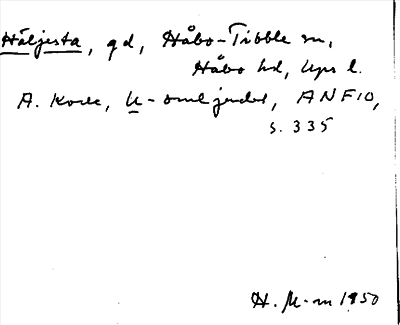 Häljesta, gd, Håbo-Tibble sn,
Håbo hd, Upps l.
A. Kock, U-omljudet, ANF 10,
s. 335
H. M-m 1950